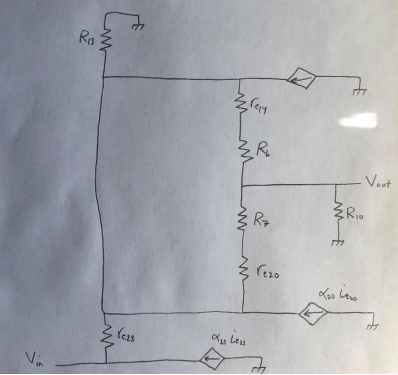 R13
re14
R6
Vout
R7
R10
re20
α20 ie20
re23
α23 ie23
Vin